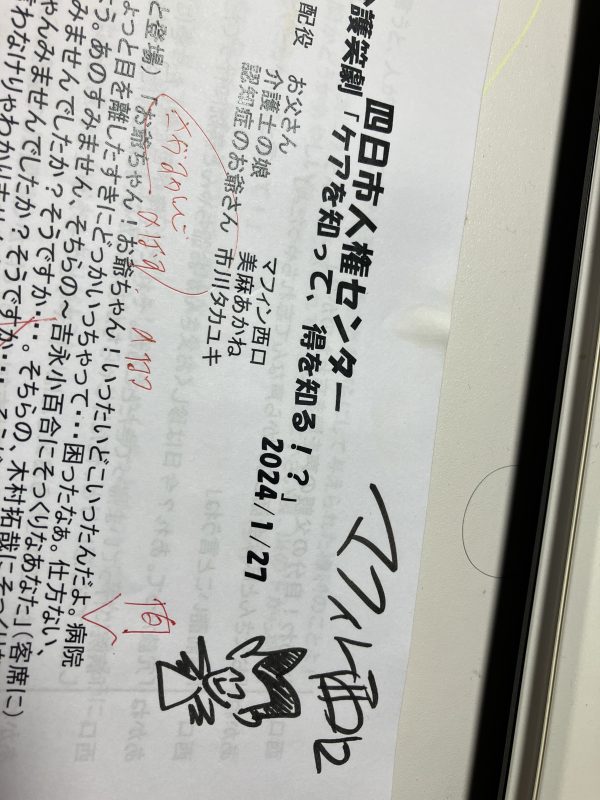 四日市人権センター
護笑劇「ケアを知って、得を知る!?」
2024/1/27
配役 お父さん マフィン西口
介護士の娘 美麻あかね
認知症のお爺さん 市川タカユキ
と登場)「お爺ちゃん!お爺ちゃん!いったいどこいったんだよ。病院
ょっと目を離したすきにどっかいっちゃって・・・困ったなぁ。仕方ない、
う。あのすみません、そちらの~吉永小百合にそっくりなあなた」(客席に)
みませんでしたか?そうですか・・・。そちらの、木村拓哉にそっくりな
ゃんみませんでしたか?そうですか・・・
わなけりゃわかりません
マフィン西口